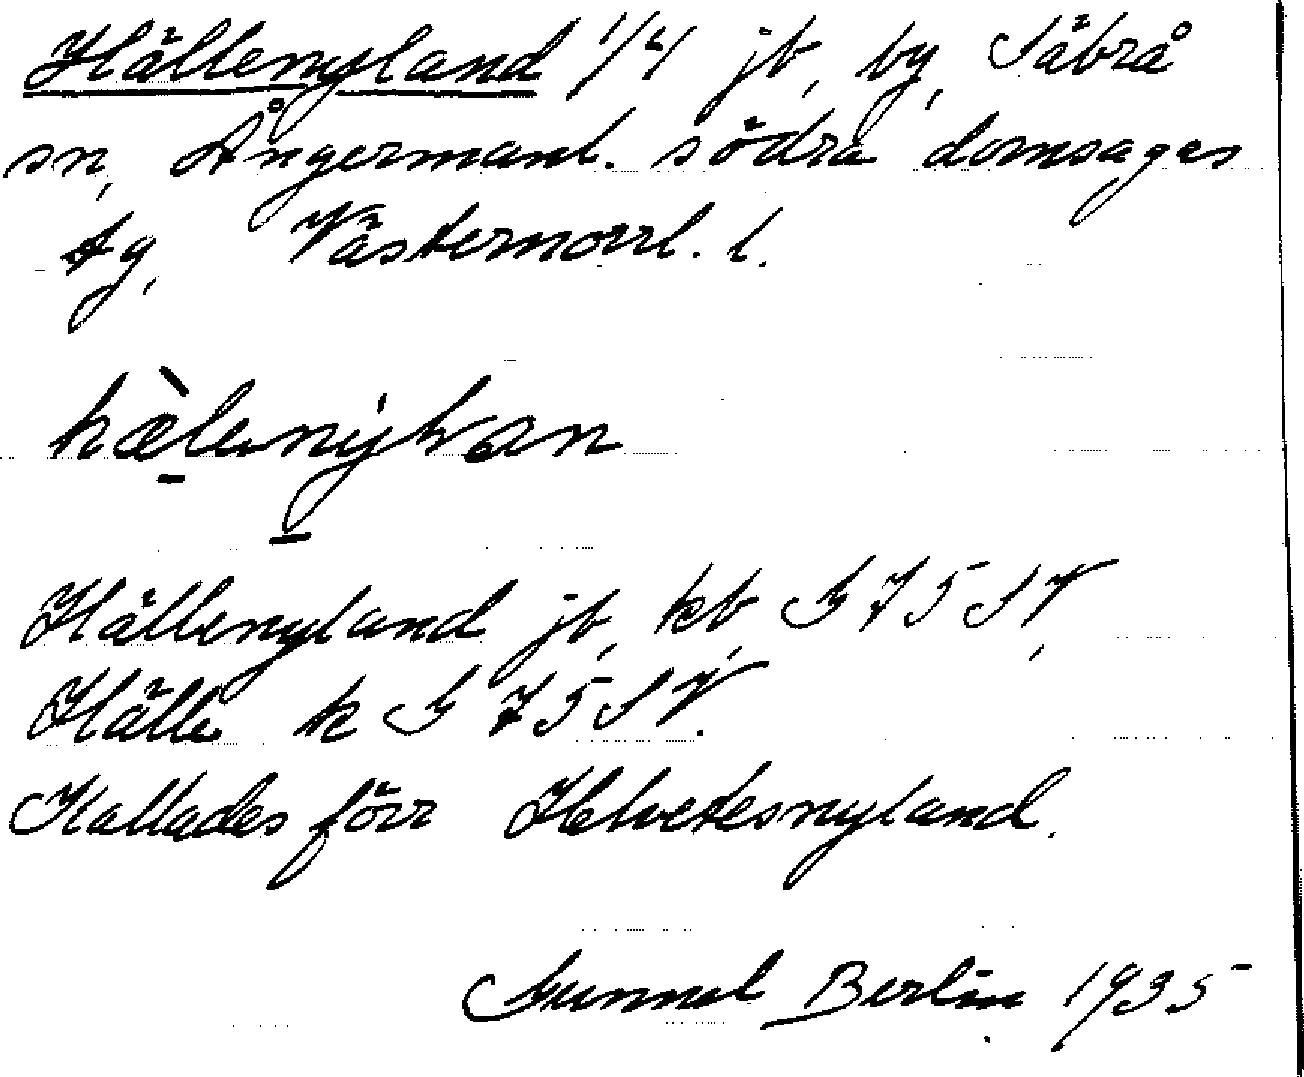 Hällenyland 1/4 jb, by, Säbrå
sn, Ångermanl. södra domsagas
tg, Västernorrl. l.
Hällenyland jb, kb G 75 SV,
Hälle k G 75 SV.
Kallades förr Helvetesnyland.
Gunnel Berlin 1935